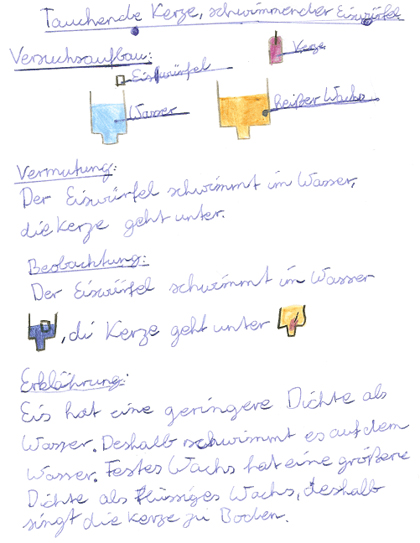 Tauchende Kerze, schwimmender Eiswürfel
Versuchsaufbau:
Kerze
Eiswürfel
Wasser
Heißer Wachs
Vermutung:
Der Eiswürfel schwimmt im Wasser,
die Kerze geht unter.
Beobachtung:
Der Eiswürfel schwimmt im Wasser
, di Kerze geht unter
Erklährung:
Eis hat eine geringere Dichte als
Wasser. Deshalb schwimmt es auf dem
Wasser. Festes Wachs hat eine größere
Dichte als flüssiges Wachs, deshalb
singt die Kerze zu Boden.